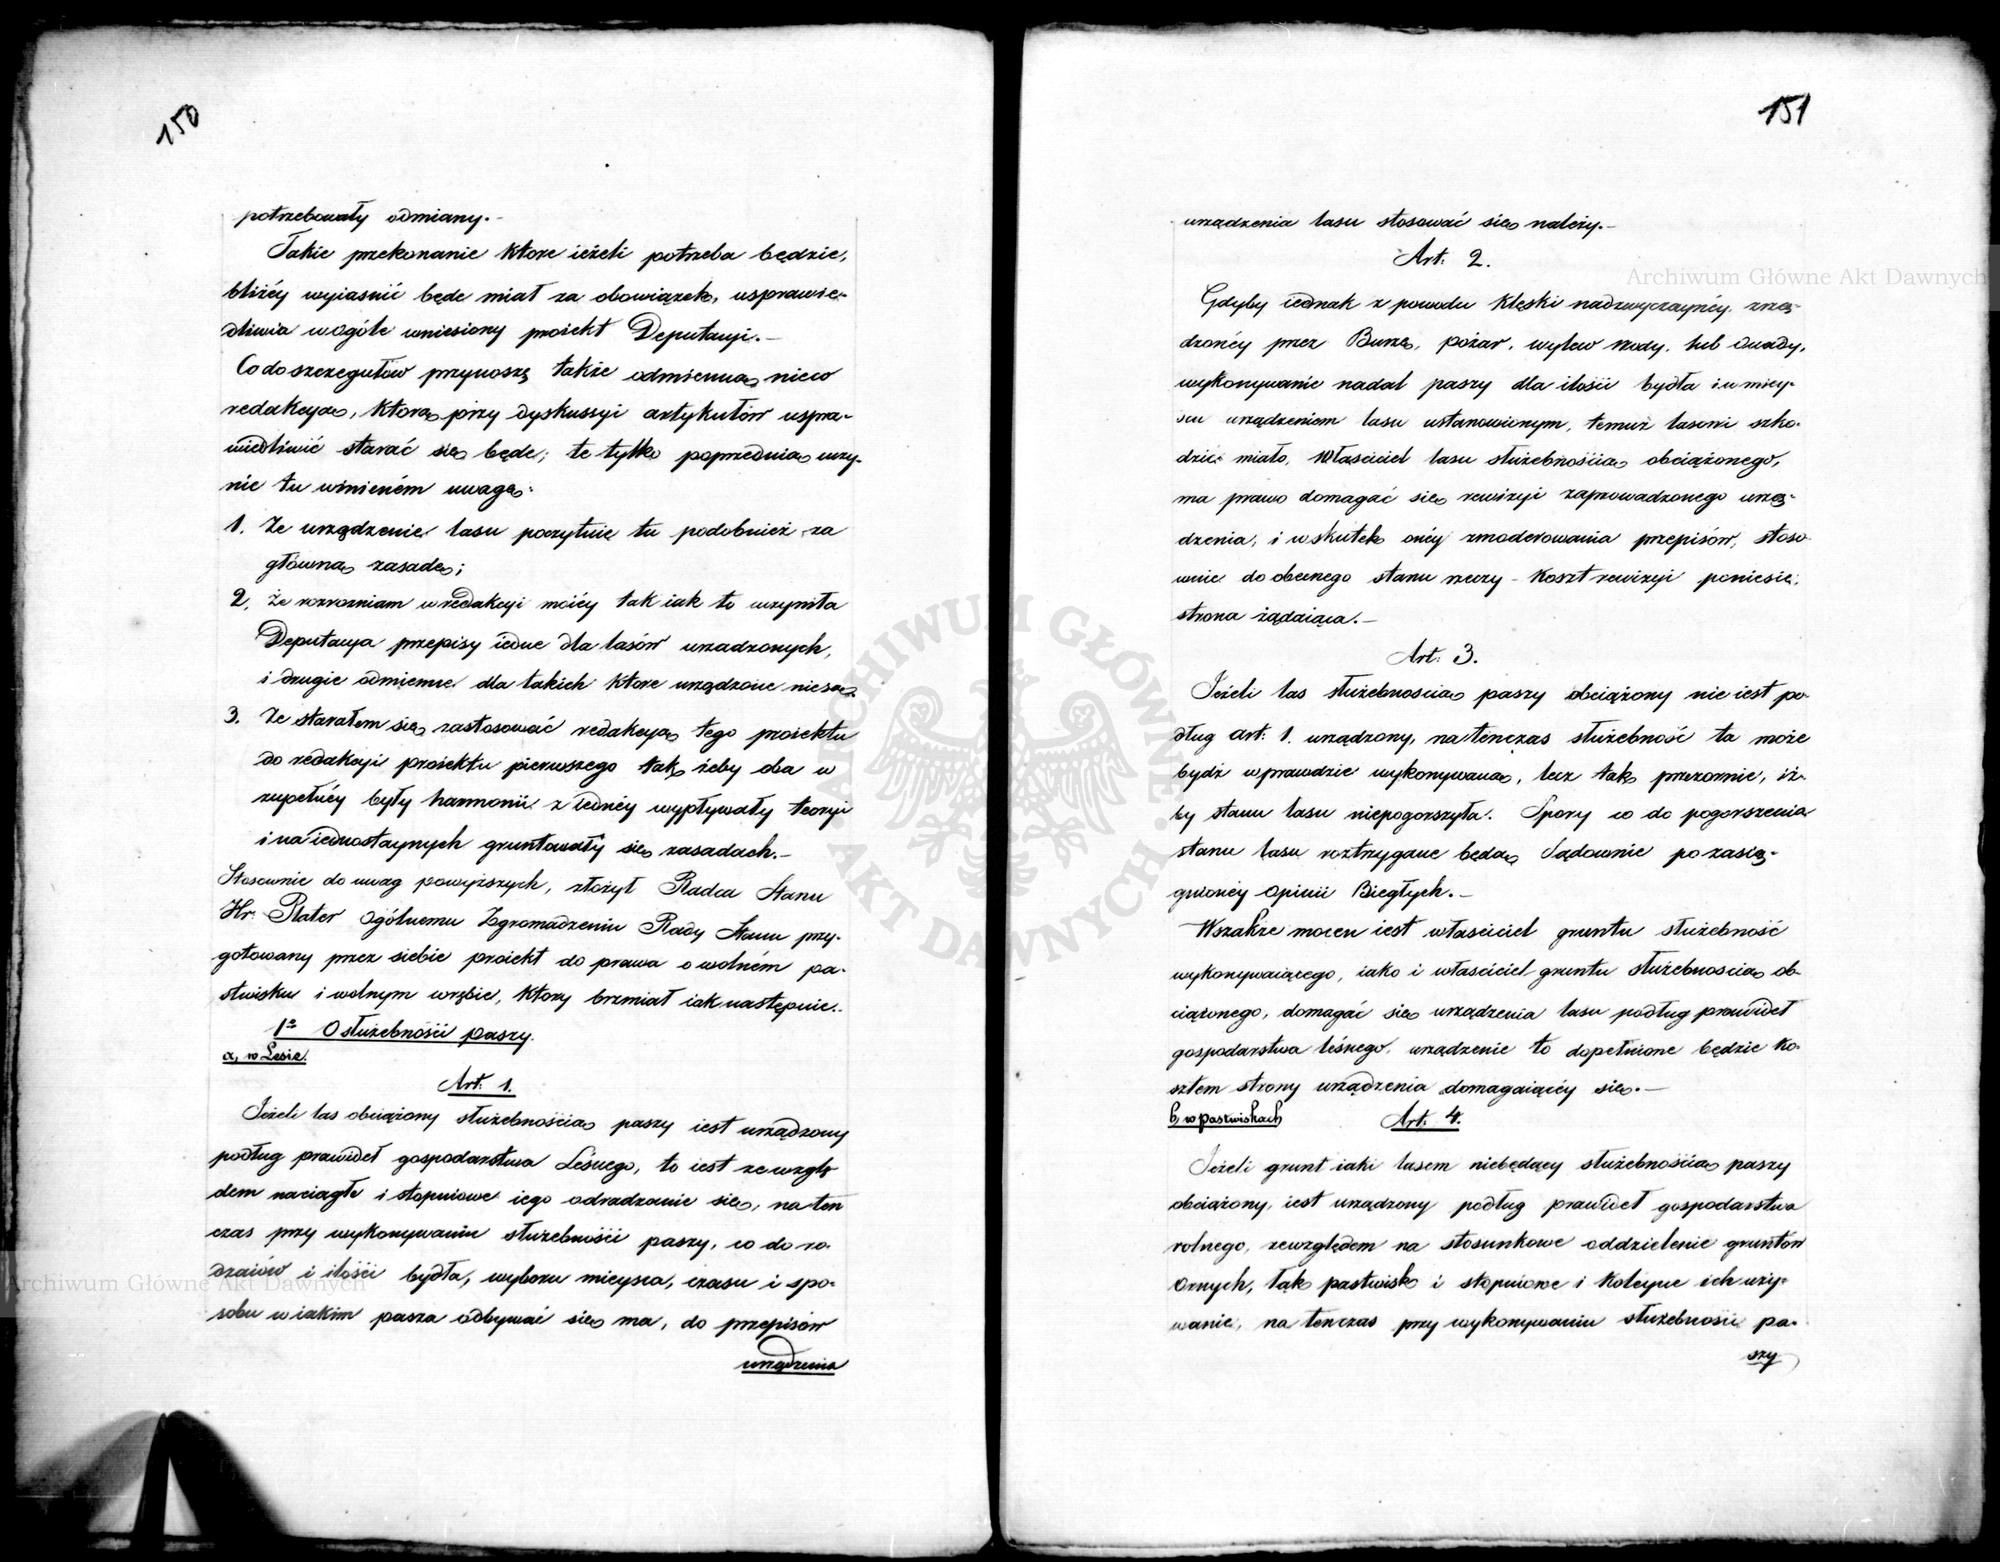 150
potrzebowały odmiany.-
Takie przekonanie które ieżeli potrzeba będzie,
bliżéy wyiaśnić będę miał za obowiązek, usprawie-
dliwia wogóle wniesiony proiekt Deputacyi.-
Co do szczegułów przynoszę także odmienną nieco
redakcyą, którą przy dyskussyi artykułów uspra-
wiedliwić starać się będę; te tylko poprzednią uczy-
nię tu winieném uwagę:
1. Że urządzenie lasu poczytuię tu podobnież za
główną zasadę;
2. że rozrożniam w redakcyi moiéy tak iak to uczyniła
Deputacya przepisy iedne dla lasów urzadzonych,
i drugie odmienne dla takich które urządzone niesą
3. Że starałem się zastosować redakcyą tego proiektu
do redakcyi proiektu pierwszego tak żeby oba w
zupełnéy były harmonii z iednéy wypływały teoryi
i na iednostaynych gruntowały się zasadach.-
Stosownie do uwag powyższych, złożył Radca Stanu
Hr. Plater Ogólnemu Zgromadzeniu Rady Stanu przy-
gotowany przez siebie proiekt do prawa o wolném pa-
stwisku i wolnym wrębie, który brzmiał iak następuie.-
1º O służebności paszy.
a, w Lesie.
Art: 1.
Jeżeli las obciążony służebnościa paszy iest urządzony
podług prawideł gospodarstwa Leśnego, to iest ze wzglę-
dem na ciągłe i stopniowe iego odradzanie się, na ten
czas przy wykonywaniu służebności paszy, co do ro-
dzaiów i ilości bydła, wyboru mieysca, czasu i spo-
sobu w iakim pasza odbywać się ma, do przepisów
urządzenia
151
urządzenia lasu stosować się należy.-
Art: 2.
Gdyby iednak z powodu klęski nadzwyczaynéy, zrzą-
dzonéy przez Burzę, pożar, wylew wody, lub owady,
wykonywanie nadal paszy dla ilości bydła i w miey-
scu urządzeniem lasu ustanowionym, temuż lasowi szko-
dzić miało, Właściciel lasu służebnością obciążonego,
ma prawo domagać się rewizyi zaprowadzonego urzą-
dzenia, i w skutek onéy zmoderowania przepisów, stoso-
wnie do obecnego stanu rzeczy - Koszt rewizyi poniesie
strona żądaiąca.-
Art: 3.
Jeżeli las służebnościa paszy obciążony nie iest po-
dług Art: 1. urządzony, na tenczas służebność ta może
bydź w prawdzie wykonywaną, lecz tak przezornie, iż-
by stanu lasu niepogorszyła. Spory co do pogorszenia
stanu lasu roztrzygane będą Sądownie po zasią-
gnionéy Opinii Biegłych.-
Wszakże mocen iest właściciel gruntu służebność
wykonywaiącego, iako i właściciel gruntu służebnościa ob-
ciążonego, domagać się urządzenia lasu podług prawideł
gospodarstwa leśnego, urządzenie to dopełnione będzie ko-
sztem strony urządzenia domagaiącéy się.-
b, w pastwiskach
Art: 4.
Jeżeli grunt iaki lasem niebędący służebnościa paszy
obciążony, iest urządzony podług prawideł gospodarstwa
rolnego, zewzględem na stosunkowe oddzielenie gruntów
Ornych, łąk pastwisk i stopniowe i koleyne ich uży-
wanie, na tenczas przy wykonywaniu służebności pa-
szy
Archiwum Główne Akt Dawnych
Archiwum Główne Akt Dawnych
ARCHIWUM GŁÓWNE AKT DAWNYCH